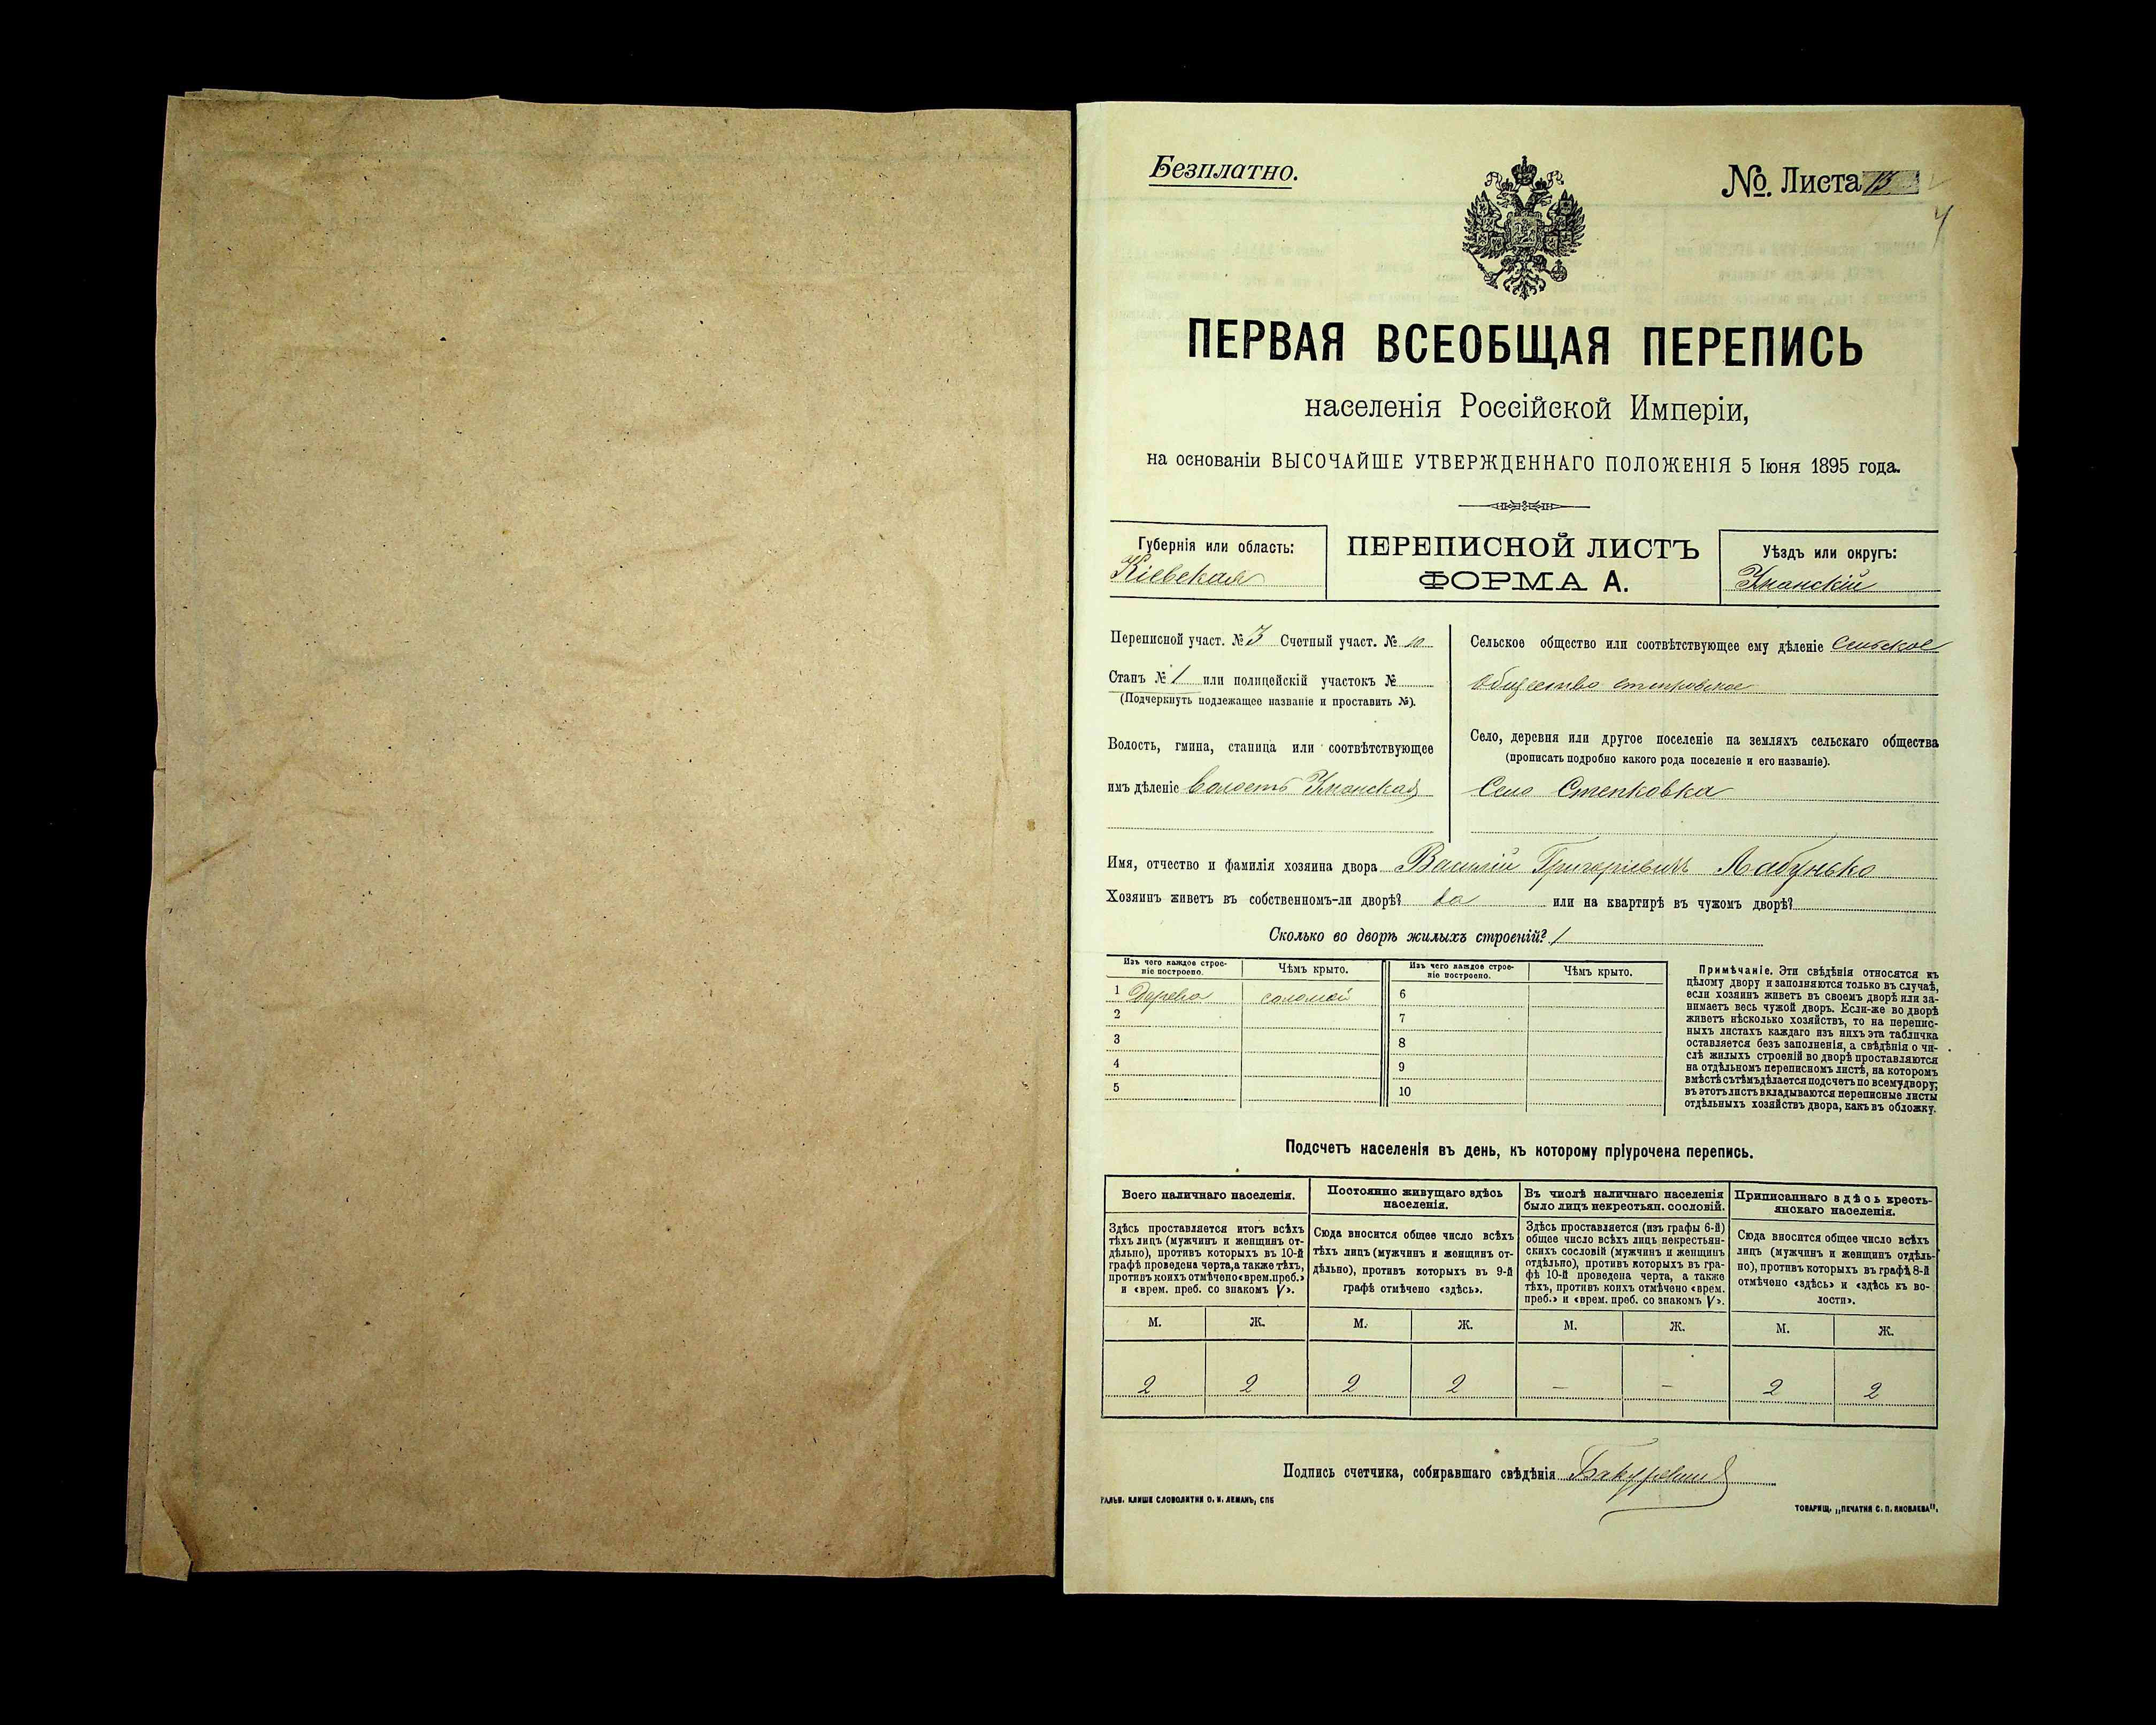 Безплатно.
№. Листа 13
4
ПЕРВАЯ ВСЕОБЩАЯ ПЕРЕПИСЬ
населенія Россійской Имперіи,
на основаніи ВЫСОЧАЙШЕ УТВЕРЖДЕННАГО ПОЛОЖЕНІЯ 5 Іюня 1895 года.
Губернія или область:
Кіевская
ПЕРЕПИСНОЙ ЛИСТЪ
ФОРМА А.
Уѣздъ или округъ:
Уманскій
Переписной участ. № 3 Счетный участ. № 10
Станъ № 1 или полицейскій участокъ №
(Подчеркнуть подлежащее названіе и проставить №).
Волость, гмина, станица или соотвѣтствующее
имъ дѣленіе Волость Уманская
Сельское общество или соотвѣтствующее ему дѣленіе Сельское
Общество
Село, деревня или другое поселеніе на земляхъ сельскаго общества
(прописать подробно какого рода поселеніе и его названіе).
Село Степковка
Имя, отчество и фамилія хозяина двора Василій Григоріевичъ Лабунько
Хозяинъ живетъ въ собственномъ-ли дворѣ? да или на квартирѣ въ чужомъ дворѣ?
Сколько во дворѣ жилыхъ строеній? 1
Изъ чего каждое строе-
ніе построено.
Чѣмъ крыто.
Изъ чего каждое строе-
ніе построено.
Чѣмъ крыто.
1 Дерево соломой 6
2 7
3 8
4 9
5 10
Примѣчаніе. Эти свѣдѣнія относятся къ
цѣлому двору и заполняются только въ случаѣ,
если хозяинъ живетъ въ своемъ дворѣ или за-
нимаетъ весь чужой дворъ. Если-же во дворѣ
живетъ нѣсколько хозяйствъ, то на перепис-
ныхъ листахъ каждаго изъ нихъ эта табличка
оставляется безъ заполненія, а свѣдѣнія о чи-
слѣ жилыхъ строеній во дворѣ проставляются
на отдѣльномъ переписномъ листѣ, на которомъ
вмѣстѣ съ тѣмъ дѣлается подсчетъ по всему двору;
въ этотъ листъ вкладываются переписные листы
отдѣльныхъ хозяйствъ двора, какъ въ обложку.
Подсчетъ населенія въ день, къ которому пріурочена перепись.
Всего наличнаго населенія.
Здѣсь проставляется итогъ всѣхъ
тѣхъ лицъ (мужчинъ и женщинъ от-
дѣльно), противъ которыхъ въ 10-й
графѣ проведена черта, а также тѣхъ,
противъ коихъ отмѣчено «врем. преб.»
и «врем. преб. со знакомъ V».
Постоянно живущаго здѣсь
населенія.
Сюда вносится общее число всѣхъ
тѣхъ лицъ (мужчинъ и женщинъ от-
дѣльно), противъ которыхъ въ 9-й
графѣ отмѣчено «здѣсь».
Въ числѣ наличнаго населенія
было лицъ некрестьян. сословій.
Здѣсь проставляется (изъ графы 6-й)
общее число всѣхъ лицъ некрестьян-
скихъ сословій (мужчинъ и женщинъ
отдѣльно), противъ которыхъ въ гра-
фѣ 10-й проведена черта, а также
тѣхъ, противъ коихъ отмѣчено «врем.
преб.» и «врем. преб. со знакомъ V».
Приписаннаго здѣсь кресть-
янскаго населенія.
Сюда вносится общее число всѣхъ
лицъ (мужчинъ и женщинъ отдѣль-
но), противъ которыхъ въ графѣ 8-й
отмѣчено «здѣсь» и «здѣсь къ во-
лости».
М. Ж. М. Ж. М. Ж. М. Ж.
2 2 2 2 — — 2 2
Подпись счетчика, собиравшаго свѣдѣнія
ГАЛЬВ. КЛИШЕ СЛОВОЛИТНИ О. И. ЛЕМАНЪ, СПБ
ТОВАРИЩ. „ПЕЧАТНЯ С. П. ЯКОВЛЕВА".